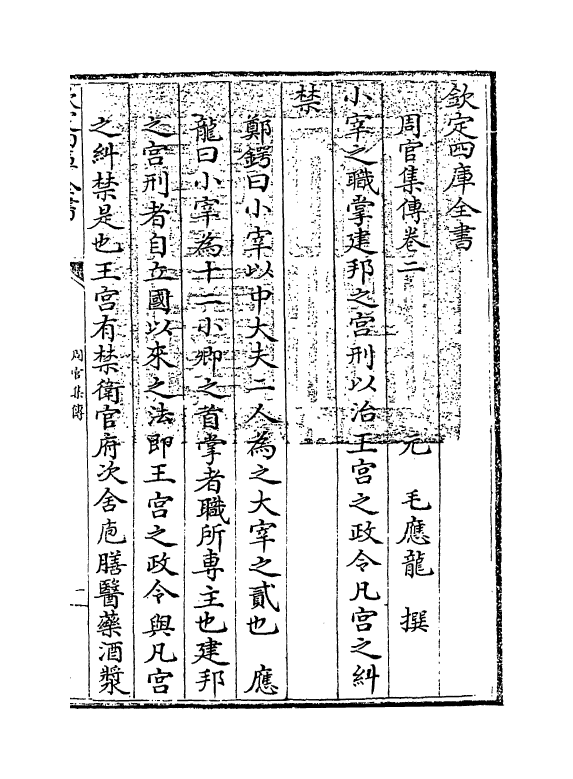 欽定四庫全書
周官集傳卷二
元 毛應龍 撰
小宰之職掌建邦之宫刑以治王宫之政令凡宫之糾
禁
鄭鍔曰小宰以中大夫二人為之大宰之貳也 應
龍曰小宰為十二小卿之首掌者職所専主也建邦
之宫刑者自立國以來之法即王宫之政令與凡宫
之糾禁是也王宫有禁衛官府次舍庖膳醫藥酒漿
欽定四庫全書
周官集傳